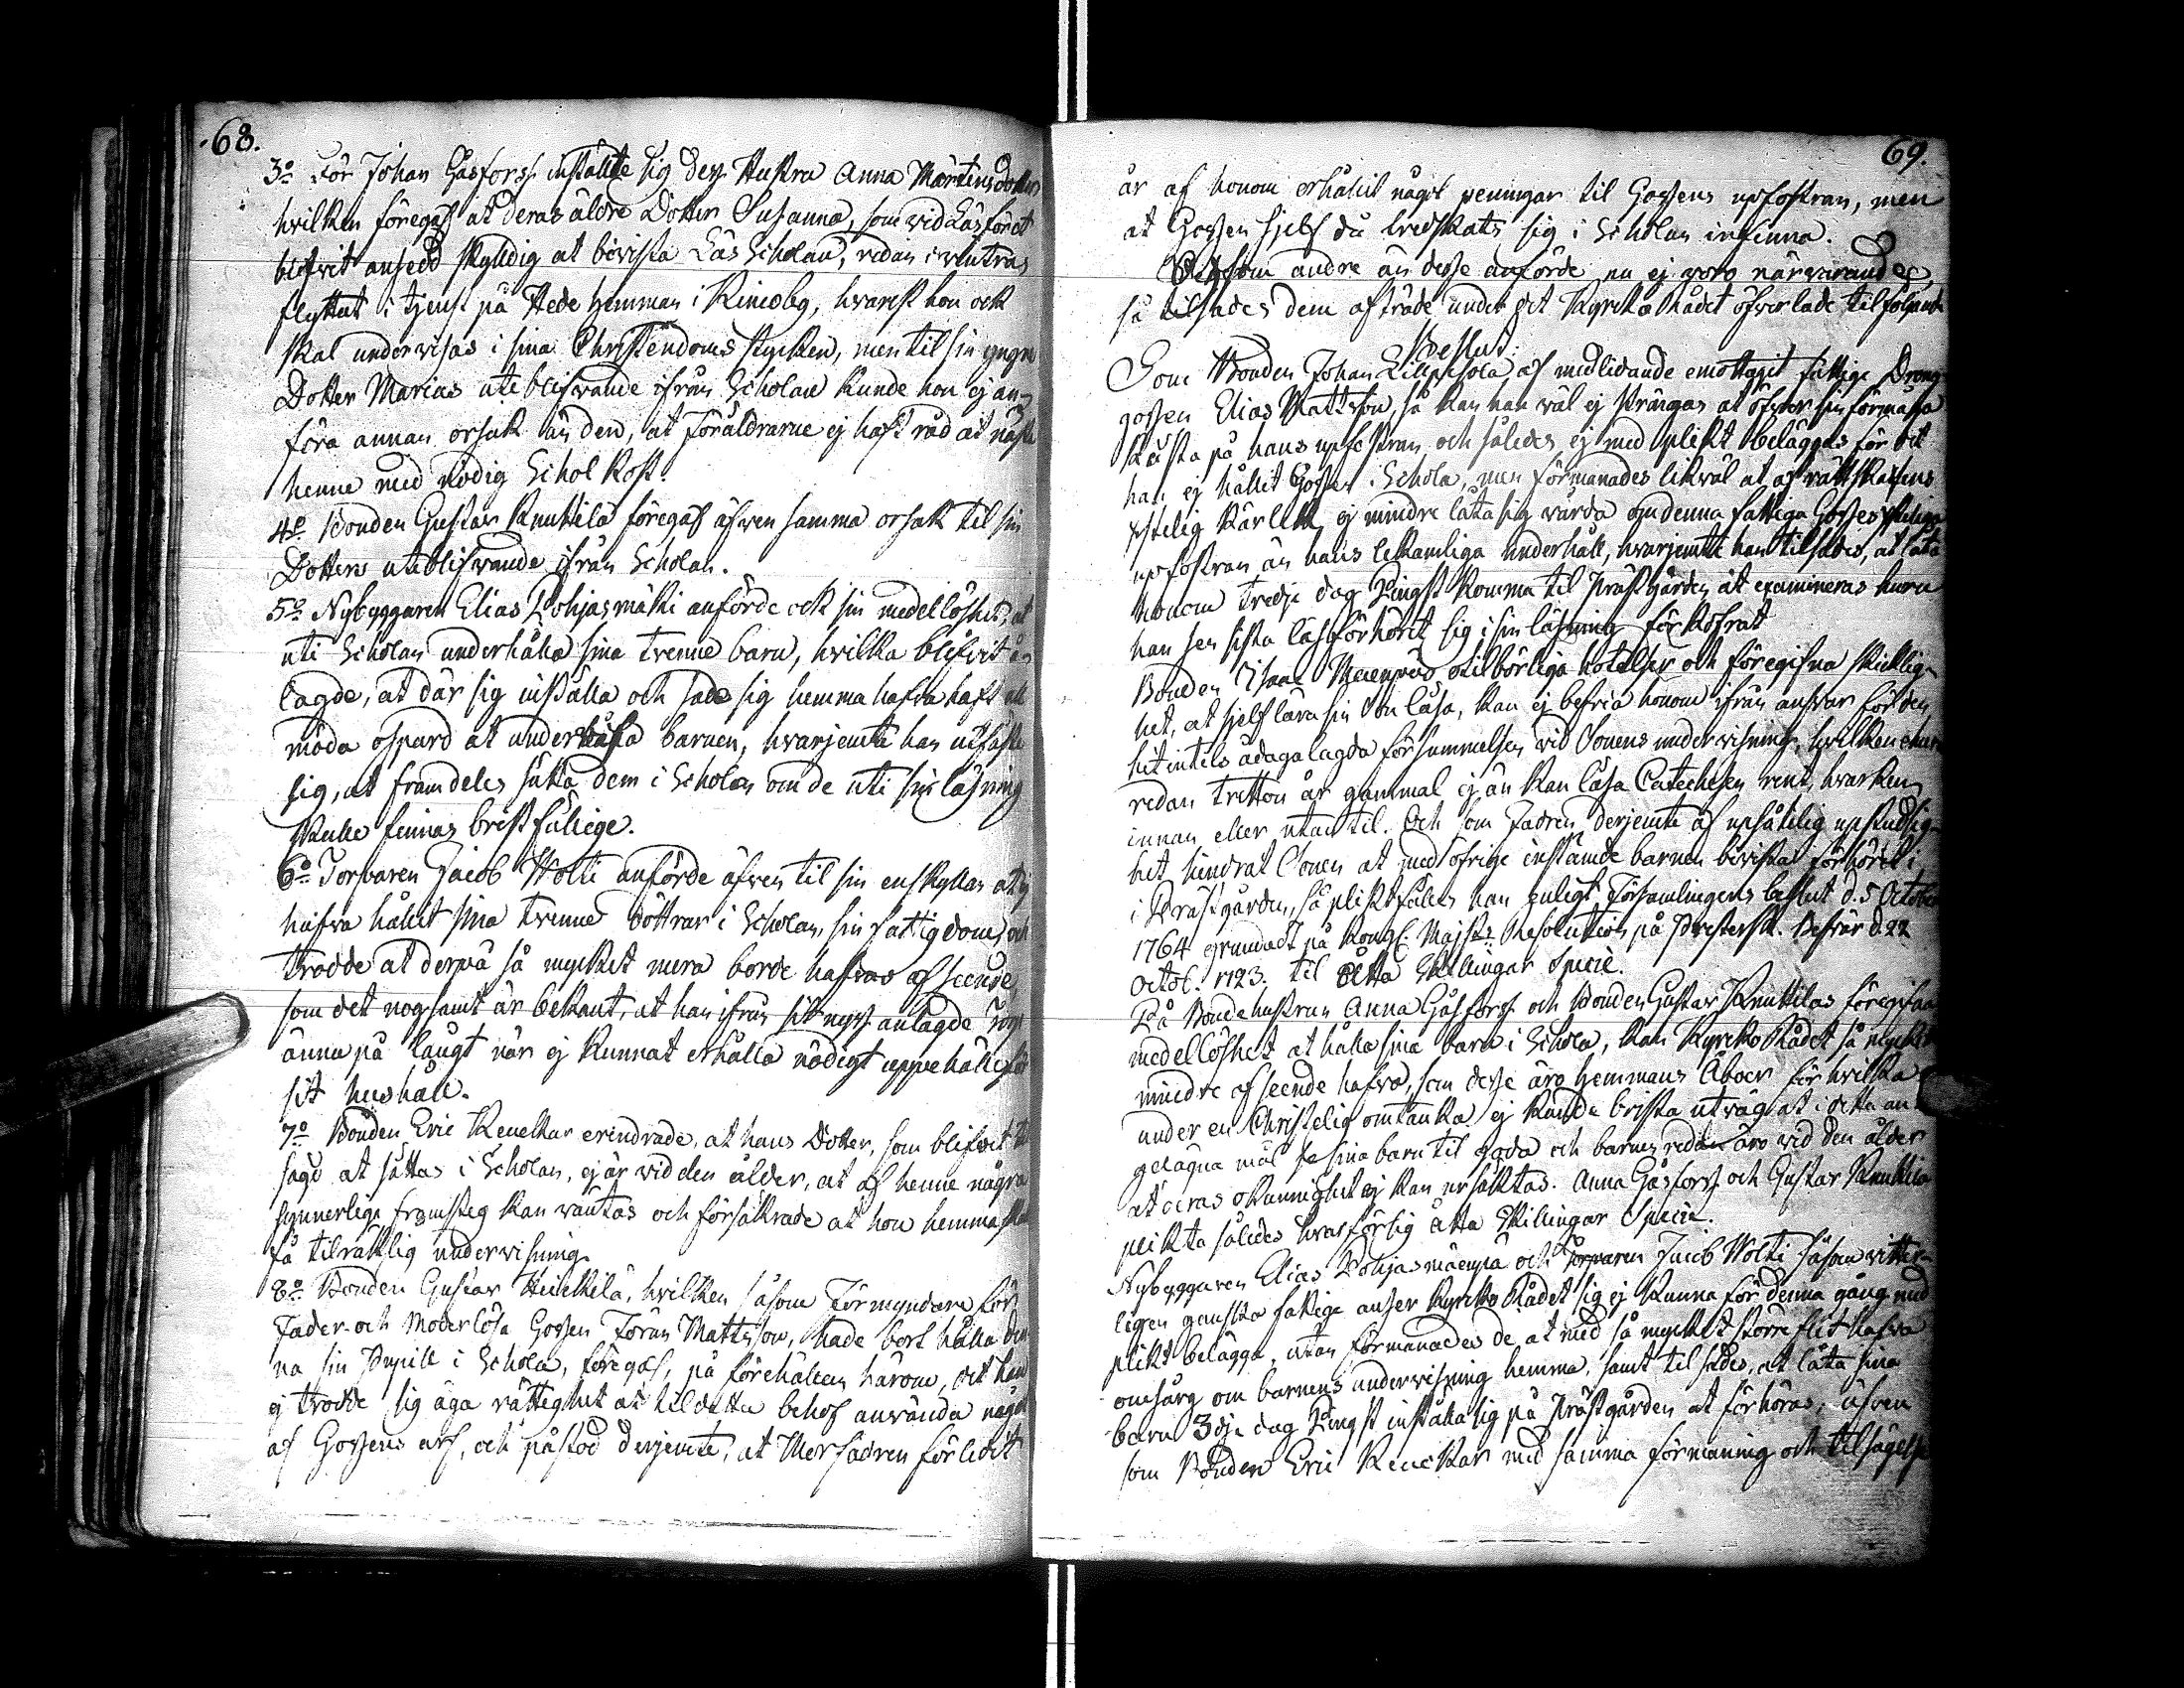 68.
3:o För Johan Gåsforss instälte sig dess Hustru Anna Mårtensdotter
hvilken föregaf at deras äldre Dotter Susanna, som vid Läsföret
blifvit ansedd skyldig at bevista Läs Scholan, redan i vintras
flyttat i tjenst på Hede hemman i Rimoby, hvarest hon ock
skal undervisas i sina Christendoms stycken, men til sin yngre
Dotter Marias uteblifvande ifrån Scholan kunde hon ej an-
föra annan orsak än den, at föräldrarne ej haft råd at
henne med nödig Schol kost.
4:o Bonden Gustav Knuttila föregaf äfven samma orsak til sin
Dotters uteblifvande ifrån Scholan.
5:o Nybyggaren Elias Pohjasmäki anförde ock sin medellöshet, at
uti Scholan underhålla sina tvenne barn, hvilka blifvit å-
lagde, at där sig inställa och sade sig hemma hafva haft all
möda ospard at undervisa barnen, hvarjemte han utfäste
sig, at framdeles sätta dem i Scholan om de uti sin läsning
skulle finnas brist fällige.
6:o Torparen Jacob Wolti anförde äfven til sin enskyllan at ej
hafva hållit sina tvenne döttrar i Scholan, sin fattigdom, och
trodde at derpå så mycket mera borde hafvas afseende,
som det nogsamt är bekant, at han ifrån sit nyss anlagde Torp
ännu på långt när ej kunnat erhålla nödigt uppehälle för
sit hushåll.
7:o Bonden Eric Renekar erindrade, at hans Dotter, som blifvit til
sagd at sättas i Scholan, ej är vid den ålder, at af henne några
synnerliga framsteg kan väntas och försäkrade at hon hemma skal
få tilräcklig undervisning.
8:o Bonden Gustav Heickilä, hvilken såsom Förmyndare för
Fader- och Moderlösa Gossen Jöran Mattsson, hade bort hålla den-
na sin Pupill i Schola, föregaf, på förehållan härom, det han
ej trodde sig äga rättighet at til detta behof använda något
af Gossens arf, och påstod derjemte, at Morfadren förledit
69.
år af honom erhållit något penningar til Gossens upfostran, men
at Gossen sjelf då tredskats sig i Scholan infinna.
som andre än desse anförde nu ej voro närvarandes,
så tilsades dem afträde under det Kyrko Rådet öfverlade til följande
Beslut.
Som Bonden Johan af medlidande emottagit fattige Dreng-
gossen Elias Mattsson, så kan han väl ej strängas at öfver sin förmåga
kåsta på hans upfostran och således ej med plikt beläggas för det
han ej hållit Gossen i Schola, men förmanades likväl at af rättskaffens
Xstelig kärlek, ej mindre låta sig vårda om denna fattiga Gosses
upfostran än hans lekamliga underhåll, hvarjemte han tilsades, at låta
honom tredje dag Pingst komma til Prästgården at examineras huru
han sen sista läsförhöret sig i sin läsning förkofrat
Bonden Isaac otilbörliga hotelser och föregifna skicklig-
het, at sjelf lära sin Son läsa, kan ej befria honom ifrån ansvar för den
hitintils ådagalagda försummelsen vid Sonens undervisning, hvilken ehur
redan tretton år gammal ej än kan läsa Catechesen rent, hvarken
innan eller utan til. Och som Fadren derjemte af upsåtelig upstudsig-
het hindrat Sonen at med öfrige instämde barnen bevista förhöret i
i Prästgården, så pliktfälles han enligt Församlingens beslut d. 5 October
1764 grundadt på Kongl. Majsts Resolution på Presterk. Besvär d. 22
Octob. 1723. til Åtta Skillingar Specie.
På Bondehustrun Anna Gåsforss och Bonden Gustav Knuttilas föregifna
medellöshet at hålla sina barn i Schola, kan Kyrko Rådet så mycket
mindre afseende hafva, som desse äro hemmans Åboer för hvilka
under en Christelig omtanka ej kunde brista utväg at i detta an-
gelägna mål se sina barn til godo och barnen redan äro vid den ålder
at deras okunnighet ej kan ursäktas. Anna Gåsforss och Gustav Knuttila
plikta således hvar för sig åtta Skillingar Specie.
Nybyggaren Elias Pohjasmäenpä och Torparen Jacob Wolti såsom vitter-
ligen ganska fattige anser Kyrko Rådet sig ej kunna för denna gång med
plikt belägga, utan förmanades de at med så mycket större flit hafva
omsorg om barnens undervisning hemma, samt tilsades, at låta sina
barn 3dje dag Pingst inställa sig på Prästgården at förhöras, äfven
som Bonden Eric Renekar med samma förmaning och tilsägelse